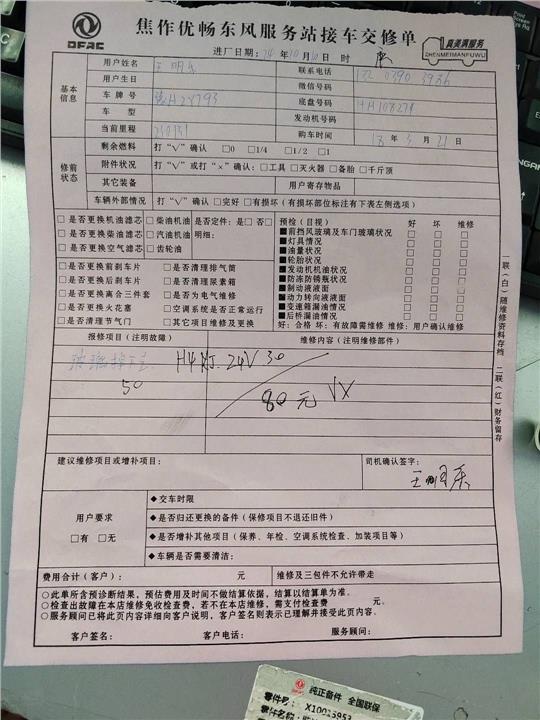 DFAC 焦作优畅东风服务站接车交修单 真美满服务
ZHENMEIMANFUWU
进厂日期: 24 年 10 月 10 日 时
基本信息
用户姓名 联系电话
用户生日 微信号码
车牌号 底盘号码
车型 发动机号码
当前里程 购车时间 18 年 3 月 21 日
修前状态
剩余燃料 打“√”确认 □0 □1/4 □1/2 □1
附件状况 打“√”或打“×”确认: □工具 □灭火器 □备胎 □千斤顶
其它装备 用户寄存物品
车辆外部情况 打“√”确认 □完好 □有损坏(有损坏部位标注有下表左侧选项)
□是否更换机油滤芯 □柴油机油 是否定件: 是□ 否□
□是否更换柴油滤芯 □汽油机油 明细:
□是否更换空气滤芯 □齿轮油
□是否更换前刹车片 □是否清理排气筒
□是否更换后刹车片 □是否清理尿素箱
□是否更换离合三件套 □是否为电气维修
□是否更换火花塞 □空调系统是否正常运行
□是否清理节气门 □其它项目维修及更换
预检(目视) 好 坏 维修
■前挡风玻璃及车门玻璃状况 □ □ □
■灯具情况 □ □ □
■油量状况 □ □ □
■轮胎状况 □ □ □
■发动机机油状况 □ □ □
■防冻防锈瓶状况 □ □ □
■制动液液面 □ □ □
■动力转向液液面 □ □ □
■变速箱漏油情况 □ □ □
■后桥漏油情况 □ □ □
好: 合格 坏: 有故障需维修 维修: 用户确认维修
报修项目(注明故障) 维修内容(注明维修部件)
H4灯. 24V 30
50
80元
建议维修项目或增补项目: 司机确认签字:
用户要求
□有 □无
◆交车时限
◆是否归还更换的备件(保修项目不退还旧件)
◆是否增补其他项目(保养、年检、空调系统检查、加装项目等)
◆车辆是否需要清洁:
费用合计(客户): 元 维修及三包件不允许带走
○此单所含预诊断结果,预估费用及时间不做结算依据,结算以结算单为准。
○检查出故障在本店维修免收检查费,若不在本店维修,需支付检查费 元。
○服务顾问已将此页内容详细向客户说明,客户签名则表示已理解并接受此页内容。
客户签名: 客户电话: 服务顾问:
一联(白)随维修资料存档
二联(红)财务留存
纯正备件 全国联保
零件号: X10013953
零件名称: